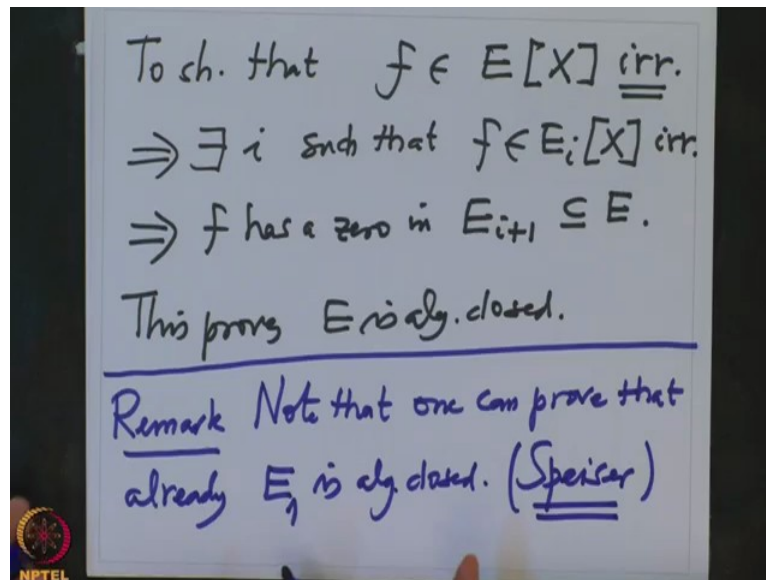 To sh. that f ∈ E[X] irr.
⇒ ∃ i such that f ∈ E_i[X] irr.
⇒ f has a zero in E_{i+1} ⊆ E.
This proves E is alg. closed.
Remark Note that one can prove that
already E_1 is alg. closed. (Speiser)
NPTEL